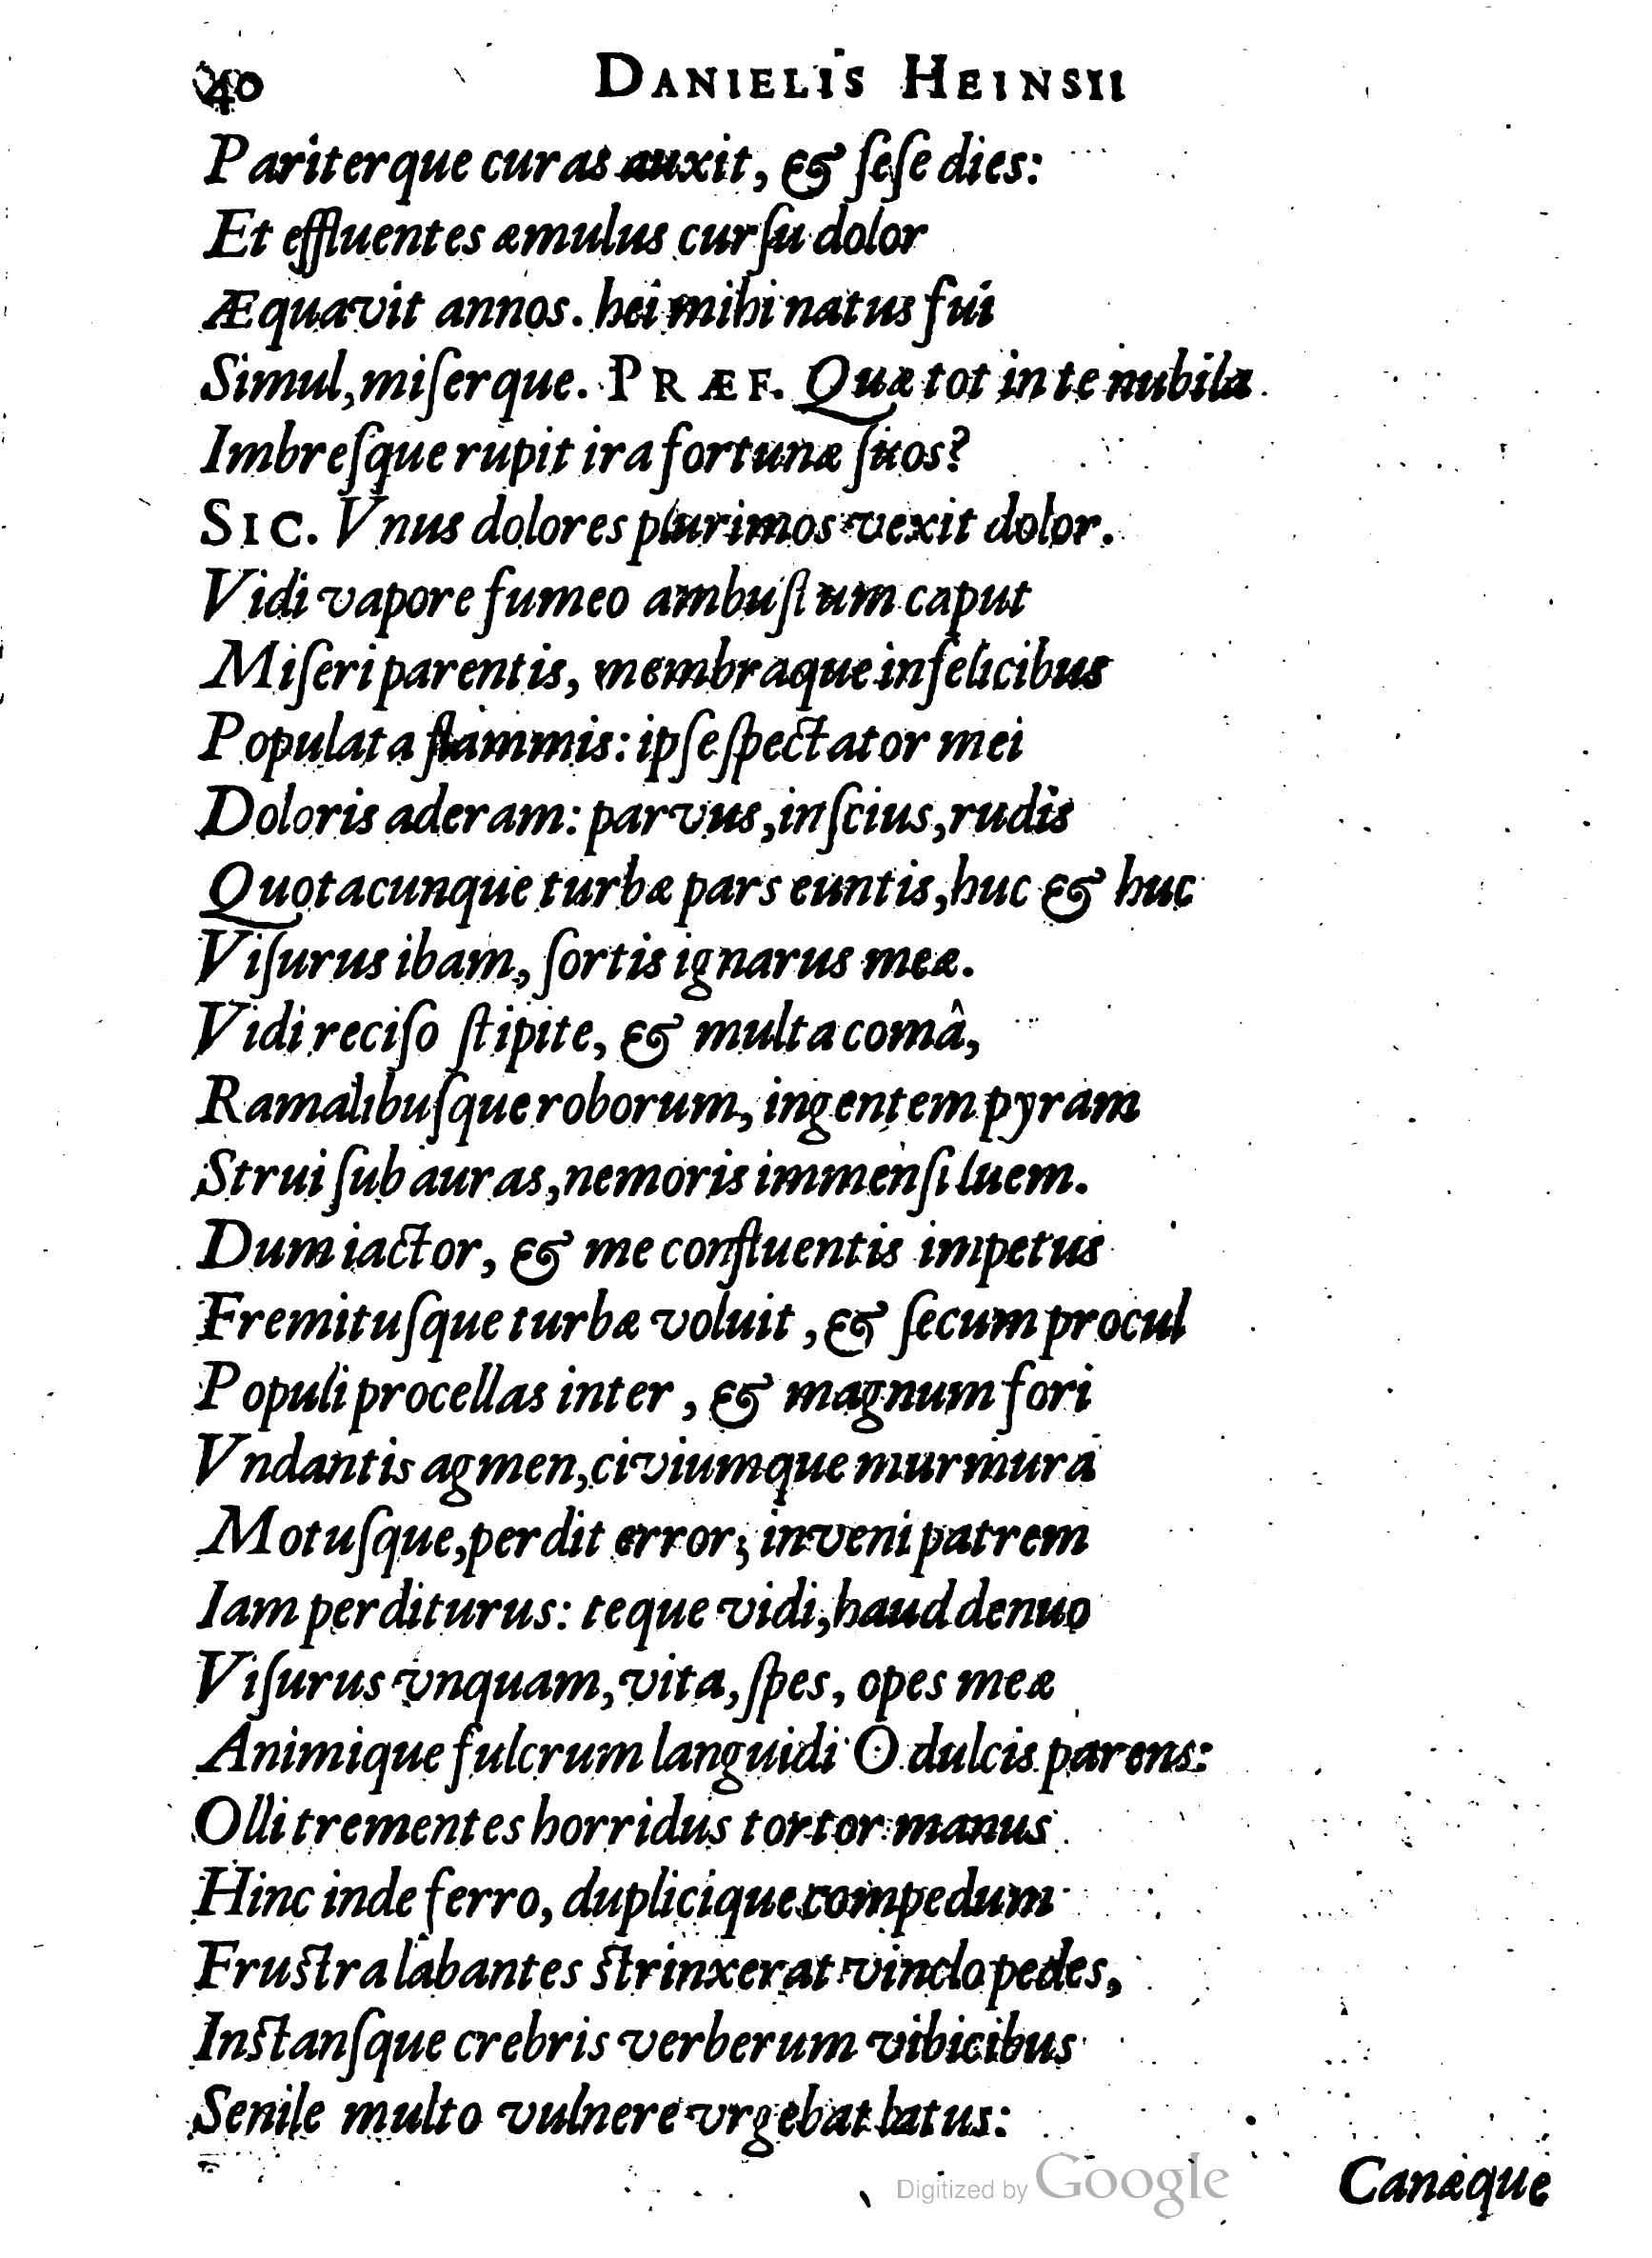 40 DANIELIS HEINSII
Pariterque curas auxit, & ſeſe dies:
Et effluentes æmulus curſu dolor
Æquavit annos. hei mihi natus fui
Simul, miſerque. PRÆF. Quæ tot in te nubila
Imbreſque rupit ira fortunæ ſuos?
SIC. Vnus dolores plurimos vexit dolor.
Vidi vapore fumeo ambuſtum caput
Miſeri parentis, membraque infelicibus
Populata flammis: ipſe ſpectator mei
Doloris aderam: parvus, inſcius, rudis
Quotacunque turbæ pars euntis, huc & huc
Viſurus ibam, ſortis ignarus meæ.
Vidi reciſo ſtipite, & multa comâ,
Ramalibuſque roborum, ingentem pyram
Strui ſub auras, nemoris immenſi luem.
Dum iactor, & me confluentis impetus
Fremituſque turbæ voluit, & ſecum procul
Populi procellas inter, & magnum fori
Vndantis agmen, civiumque murmura
Motuſque, perdit error; inveni patrem
Iam perditurus: teque vidi, haud denuo
Viſurus vnquam, vita, ſpes, opes meæ
Animique fulcrum languidi O dulcis parens:
Olli trementes horridus tortor manus
Hinc inde ferro, duplicique compedum
Fruſtra labantes ſtrinxerat vinclo pedes,
Inſtanſque crebris verberum vibicibus
Senile multo vulnere vrgebat latus:
Canæque
Digitized by Google